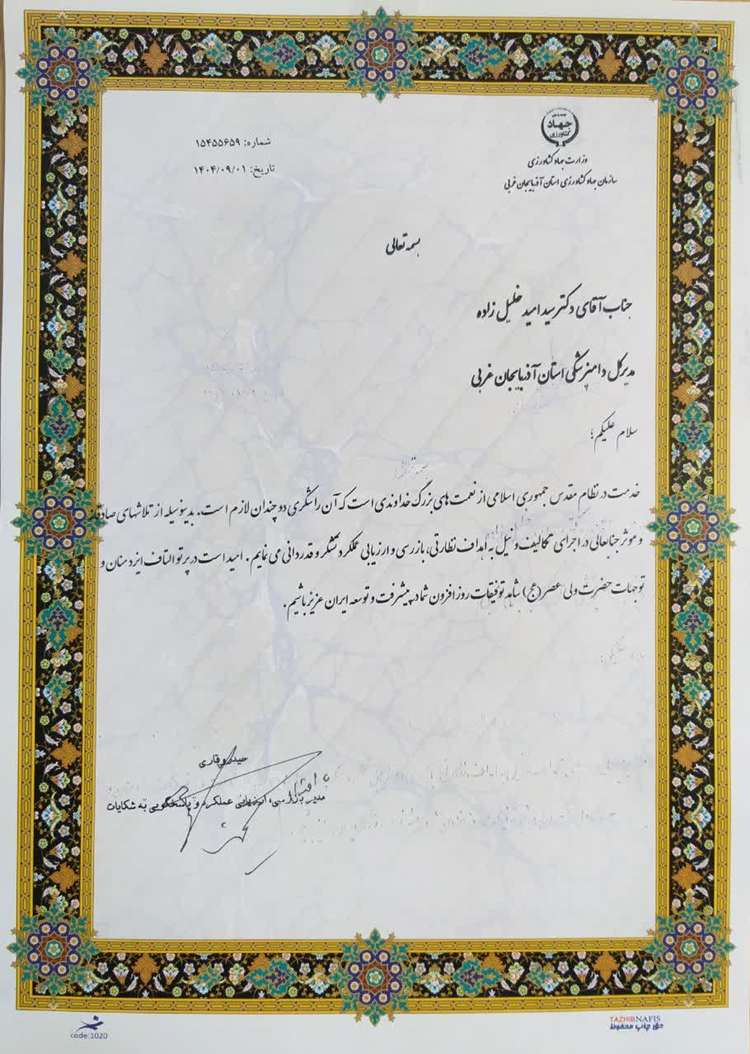 شماره: ۱۵۴۵۵۶۵۹
تاریخ: ۱۴۰۴/۰۹/۰۱
جهاد
کشاورزی
وزارت جهاد کشاورزی
سازمان جهاد کشاورزی استان آذربایجان غربی
بسمه تعالی
جناب آقای دکتر سید امید خلیل زاده
مدیر کل دامپزشکی استان آذربایجان غربی
سلام علیکم؛
خدمت در نظام مقدس جمهوری اسلامی از نعمت های بزرگ خداوندی است که آن را شکری دو چندان لازم است. بدینوسیله از تلاشهای صادقانه
و موثر جنابعالی در اجرای تکالیف و نیل به اهداف نظارتی، بازرسی و ارزیابی عملکرد تشکر و قدردانی می نمایم. امید است در پرتو التاف ایزد منان و
توجهات حضرت ولی عصر (عج) شاهد توفیقات روز افزون شما در پیشرفت و توسعه ایران عزیز باشیم.
حیدر وقاری
مدیر بازرسی، ارزیابی عملکرد و پاسخگویی به شکایات
code:1020
TAZHIBNAFIS
حق چاپ محفوظ